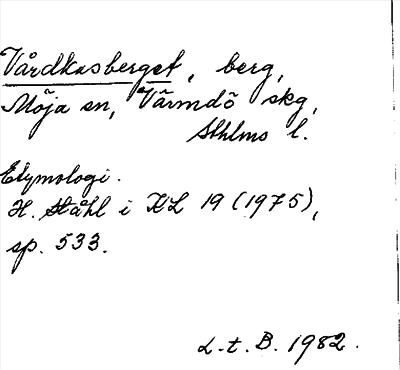 Vårdkasberget, berg,
Möja sn, Värmdö skg,
Sthlms l.
Etymologi.
H. Ståhl i KL 19 (1975),
sp. 533.
L.t.B. 1982.